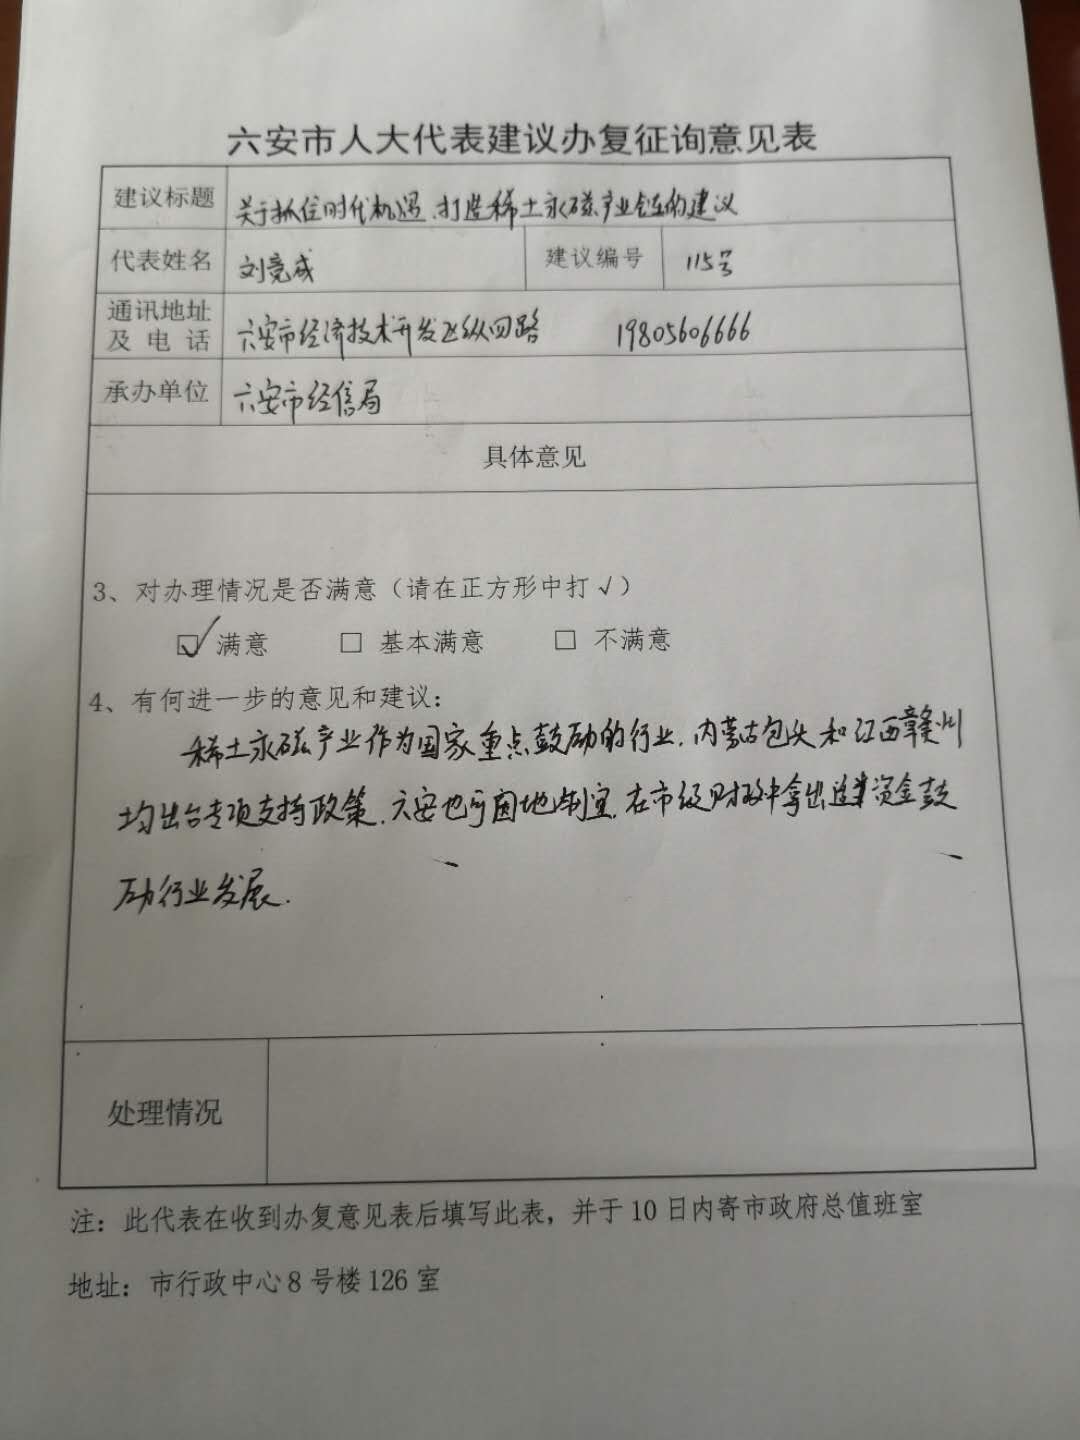 六安市人大代表建议办复征询意见表
建议标题 关于抓住时代机遇、打造稀土永磁产业链的建议
代表姓名 刘竞成 建议编号 115号
通讯地址
及电话 六安市经济技术开发区纵四路 19805606666
承办单位 六安市经信局
具体意见
3、对办理情况是否满意（请在正方形中打√）
☑ 满意 □ 基本满意 □ 不满意
4、有何进一步的意见和建议：
稀土永磁产业作为国家重点鼓励的行业，内蒙古包头和江西赣州
均出台专项支持政策，六安也可因地制宜，在市级财政中拿出资金鼓
励行业发展.
处理情况
注：此代表在收到办复意见表后填写此表，并于10日内寄市政府总值班室
地址：市行政中心8号楼126室